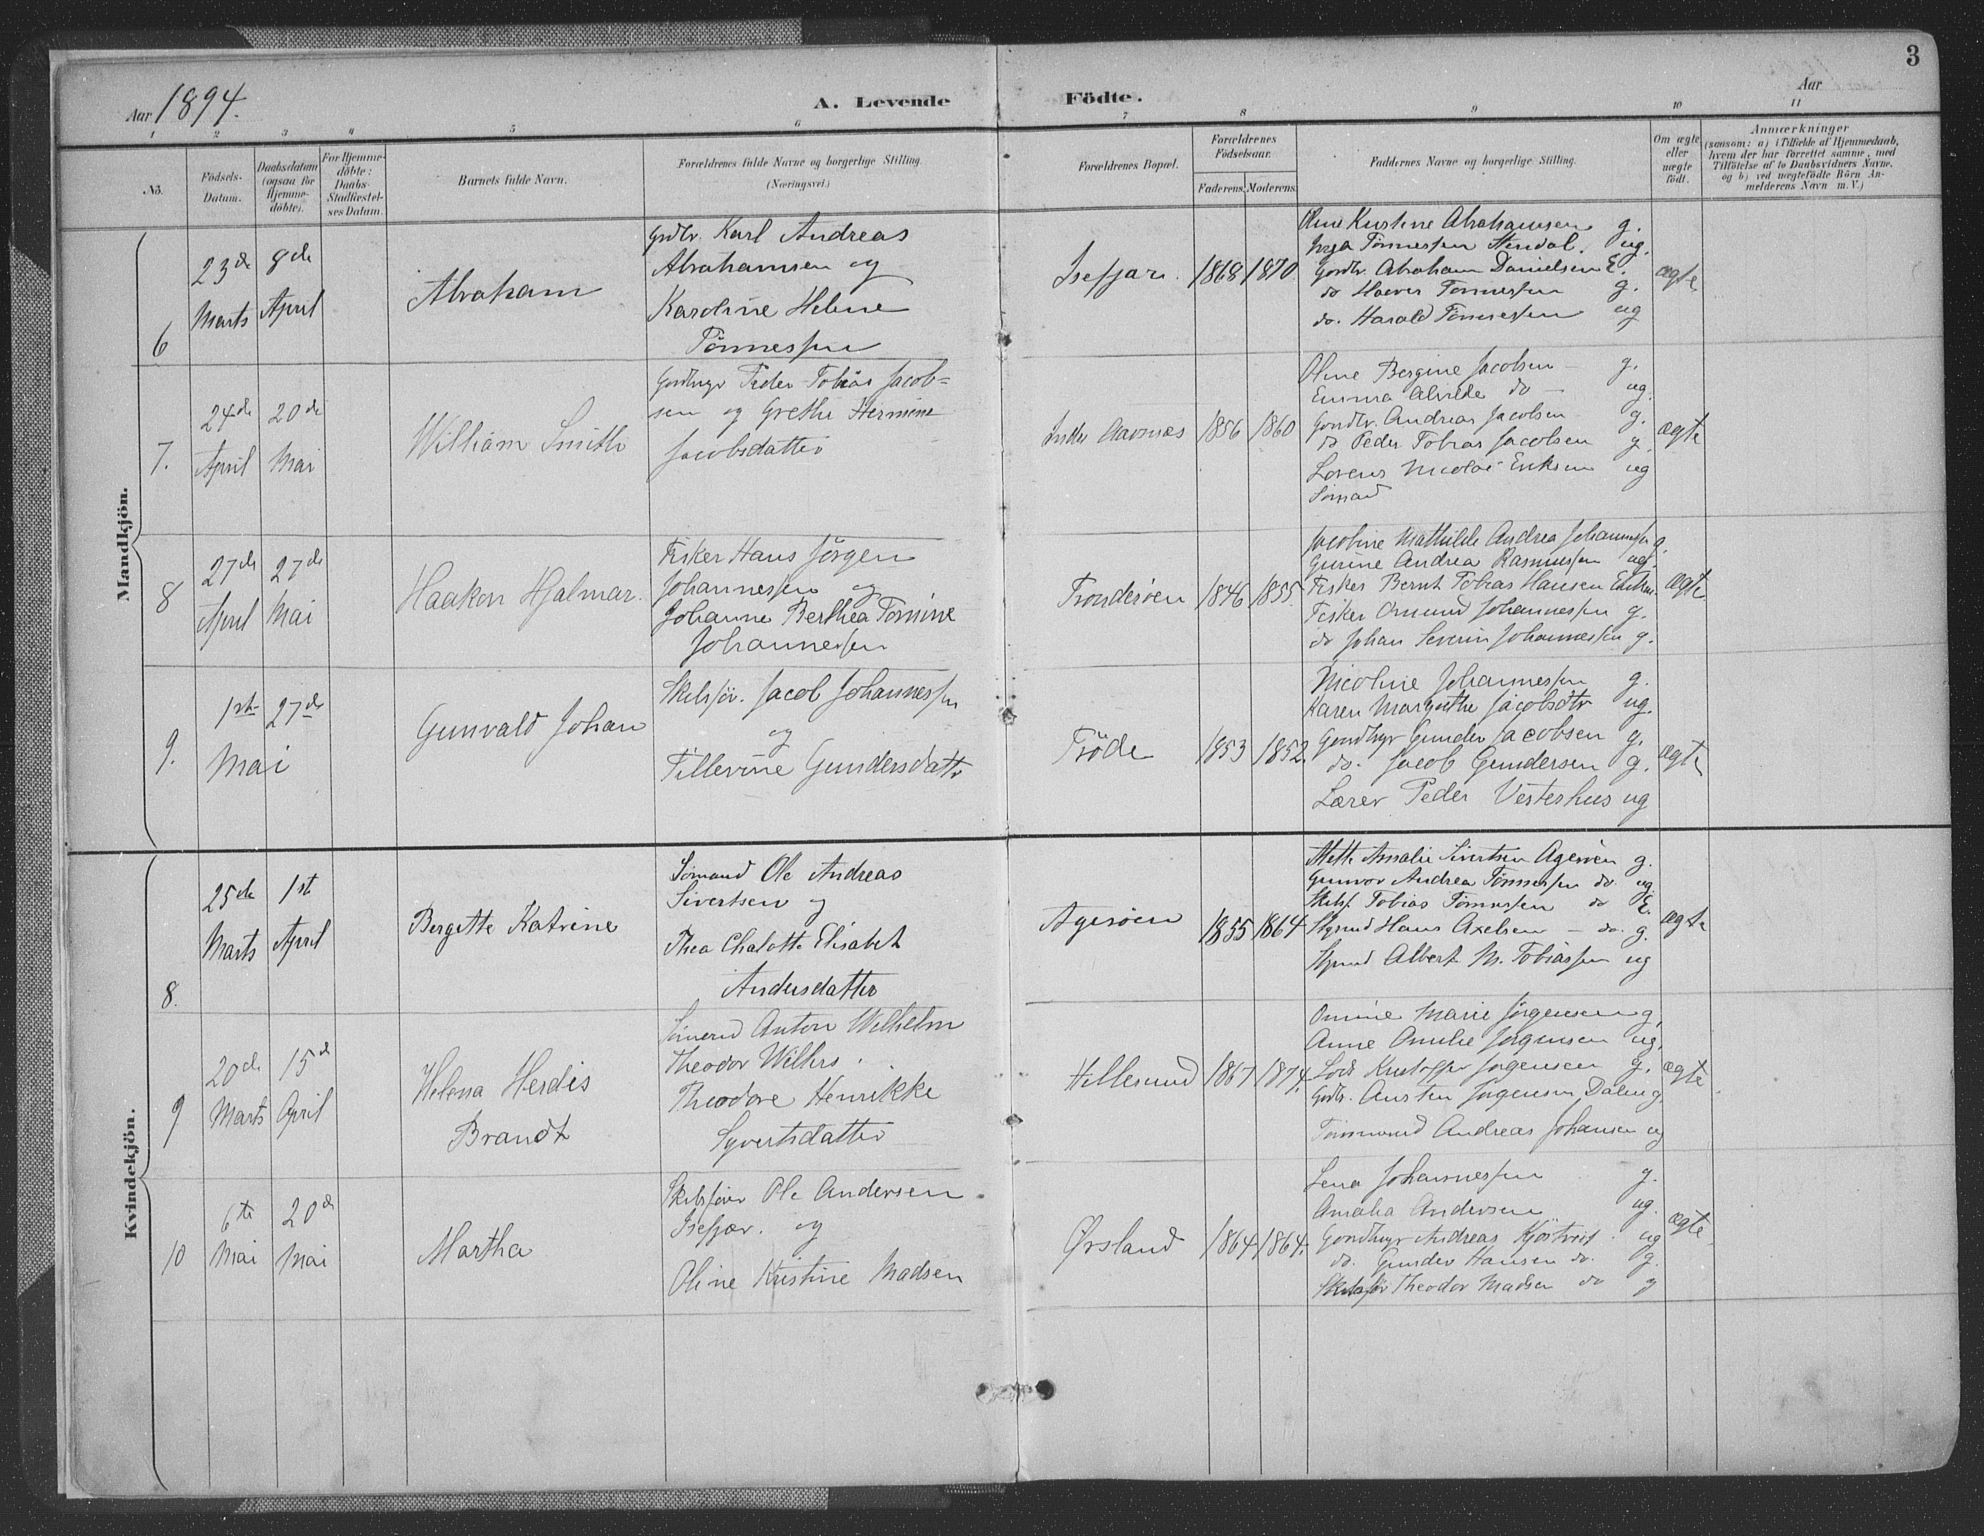 3
Aar 1894.
A. Levende Födte.
Aar
1 2 3 4 5 6 7 8 9 10 11
No.
Födsels-Datum.
Daabsdatum (ogsaa for Hjemme-döbte).
For Hjemme-döbte: Daabs-Stadfæstel-ses Datum.
Barnets fulde Navn.
Forældrenes fulde Navne og borgerlige Stilling. (Næringsvei.)
Forældrenes Bopæl.
Forældrenes Födselsaar.
Faderens. Moderens.
Faddernes Navne og borgerlige Stilling.
Om ægte eller uægte födt.
Anmærkninger
(saasom: a) i Tilfælde af Hjemmedaab, hvem der har forrettet samme, med Tilföielse af to Daabsvidners Navne, og b) ved uægtefödte Börn An-melderens Navn m. V.)
Mandkjön.
6
23de Marts
8de April
Abraham
Grdbr. Karl Andreas
Abrahamsen og
Karoline Helene
Tönnessen
Isefjær.
1868
1870
Oline Kristine Abrahamsen g.
Inga Tönnessen ug.
Gordbr. Abraham Danielsen E.
do Tönnessen g.
do. Harald Tönnessen ug
ægte
7.
24de April
20de Mai
William Smith
Peder Tobias Jacob=
sen og Grethe Hermine
Jacobsdatter
Aavnæs
1856
1860
Oline Bergine Jacobsen g.
Emma Alvilde do ug
Gordbr. Andreas Jacobsen g.
do Peder Tobias Jacobsen g.
Lorens Nicolai Eriksen ug
Sömand
ægte
8
27de April
27de Mai
Haakon Hjalmar.
Fisker Hans Jörgen
Johannessen og
Johanne Berthea Tomine
Johannessen
Tronderöen
1846
1855.
Jacobine Mathilde Andrea Johannessen g.
Gurine Andrea Rasmussen ug.
Fisker Bernt Tobias Hansen
Fisker Omund Johannessen g.
do Johan Severin Johannessen g.
ægte
9.
1ste Mai
27de
Gunvald Johan
Skibsför. Jacob Johannessen
og
Tillevine Gundersdatter
Tröde
1853
1852.
Nicoline Johannessen g.
Karen Margrethe Jacobsdtr ug.
Gunder Jacobsen g.
do. Jacob Gundersen g.
Lærer Peder Vesterhus ug
ægte
Kvindekjön.
8.
25de Marts
1st April
Bergette Katrine
Sömand Ole Andreas
Sivertsen og
Thea Chalotte Elisabet
Andersdatter
Ageröen
1855
1864
Mette Amalie Sivertsen Ageröen g.
Gunvor Andrea Tönnessen do. ug.
Skibsf. Tobias Tönnessen do E.
Hans Axelsen – do. g.
Albert M. Tobiassen ug
ægte
9
20de Marts
15d April
Helena Herdis
Brandt
Sömand Anton Wilhelm
Theodor Wilhers.
Theodore Henrikke
Syvertsdatter
Hillesund
1867
1874.
Omine Marie Jörgensen g.
Anne Omelie Jörgensen ug.
Lods Kristoffer Jörgensen g.
Grdbr. Austen Jörgensen g
Tömmermd Andreas Johansen ug
ægte
10
6te Mai
20de Mai
Martha
Skibsförer Ole Andersen
Isefjær. og
Oline Kristine Madsen
Ørsland
1864
1864.
Lena Johannessen g.
Amalia Andersen ug.
Andreas ug
do. Gunder Hansen do. g.
Skibsför Theodor Madsen do g
ægte.